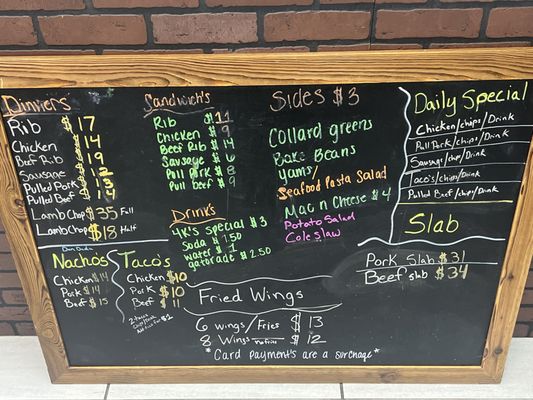 Dinners
Rib $17
Chicken $14
Beef Rib $19
Sausage $12
Pulled Pork $13
Pulled Beef $14
Lamb Chop $35 Full
Lamb Chop $18 Half
Sandwich's
Rib $11
Chicken $9
Beef Rib $14
Sausage $6
Pull Pork $8
Pull beef $9
Drink's
4K's special $3
Soda $1.50
water $1
gatorade $2.50
Sides $3
Collard greens
Bake Beans
yams/
Seafood Pasta Salad
Mac n Cheese $4
Potato Salad
Cole slaw
Daily Special
Chicken/chips/Drink
Pull Pork/chips/Drink
Sausage/chip/Drink
Taco's/chips/Drink
Pulled Beef/chip/Drink
Slab
Pork Slab $31
Beef slab $34
Nacho's
Chicken $14
Pork $14
Beef $15
Tacos
Chicken $10
Pork $10
Beef $11
2 tacos
Fried Wings
6 wings/Fries $13
8 Wings no fries $12
*Card payment's are a surchage*